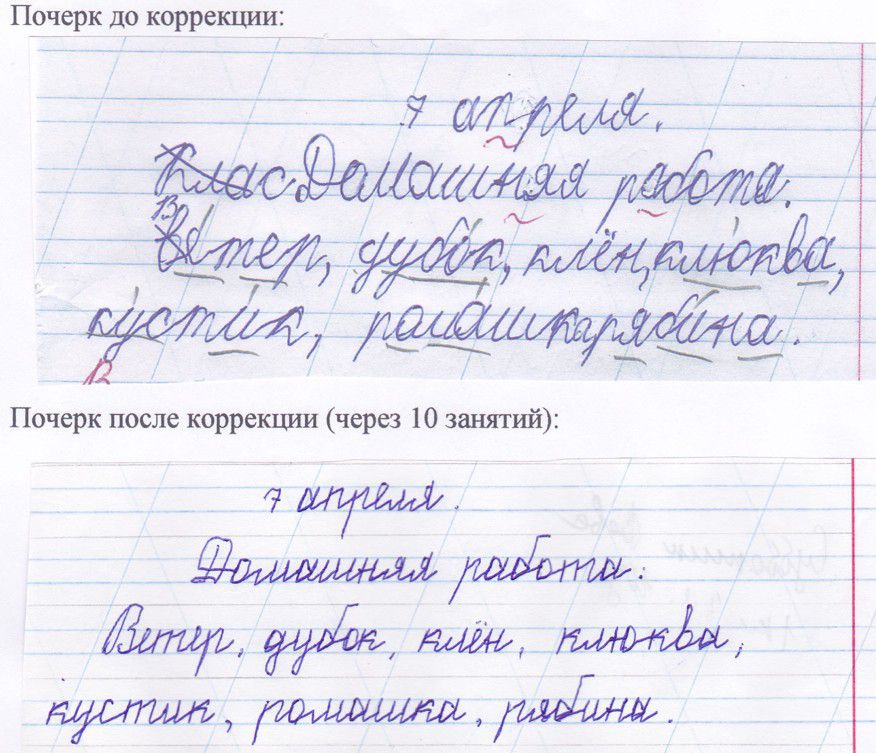 Почерк до коррекции:
7 апреля.
Клас Домашняя работа.
Ветер, дубок, клён, клюква,
кустик, ромашка, рябина.
В
Почерк после коррекции (через 10 занятий):
7 апреля.
Домашняя работа.
Ветер, дубок, клён, клюква,
кустик, ромашка, рябина.